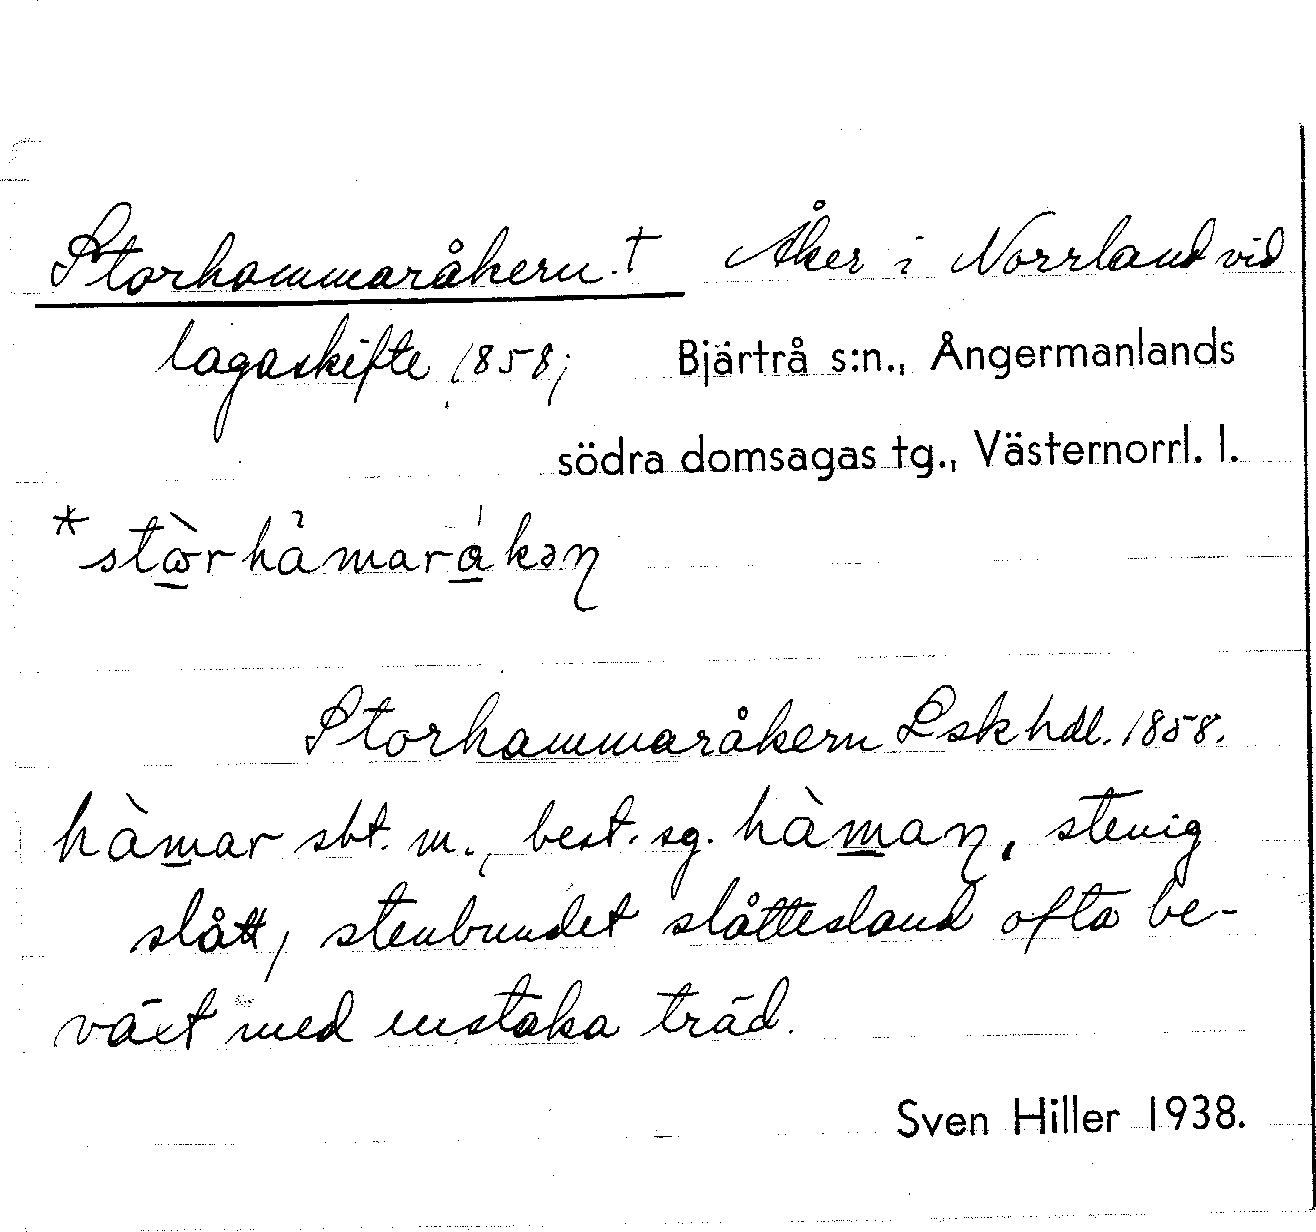 Storhammaråkern. † Åker i Norrland vid
lagaskifte 1858; Bjärtrå s:n., Ångermanlands
södra domsagas tg., Västernorrl. l.
*stòrhả̀maråkəɳ
Storhammaråkern Lskhdl. 1858.
hàmar sbt. m., best. sg. hàmaɳ, stenig
slått, stenbundet slåttesland ofta be-
växt med enstaka träd.
Sven Hiller 1938.